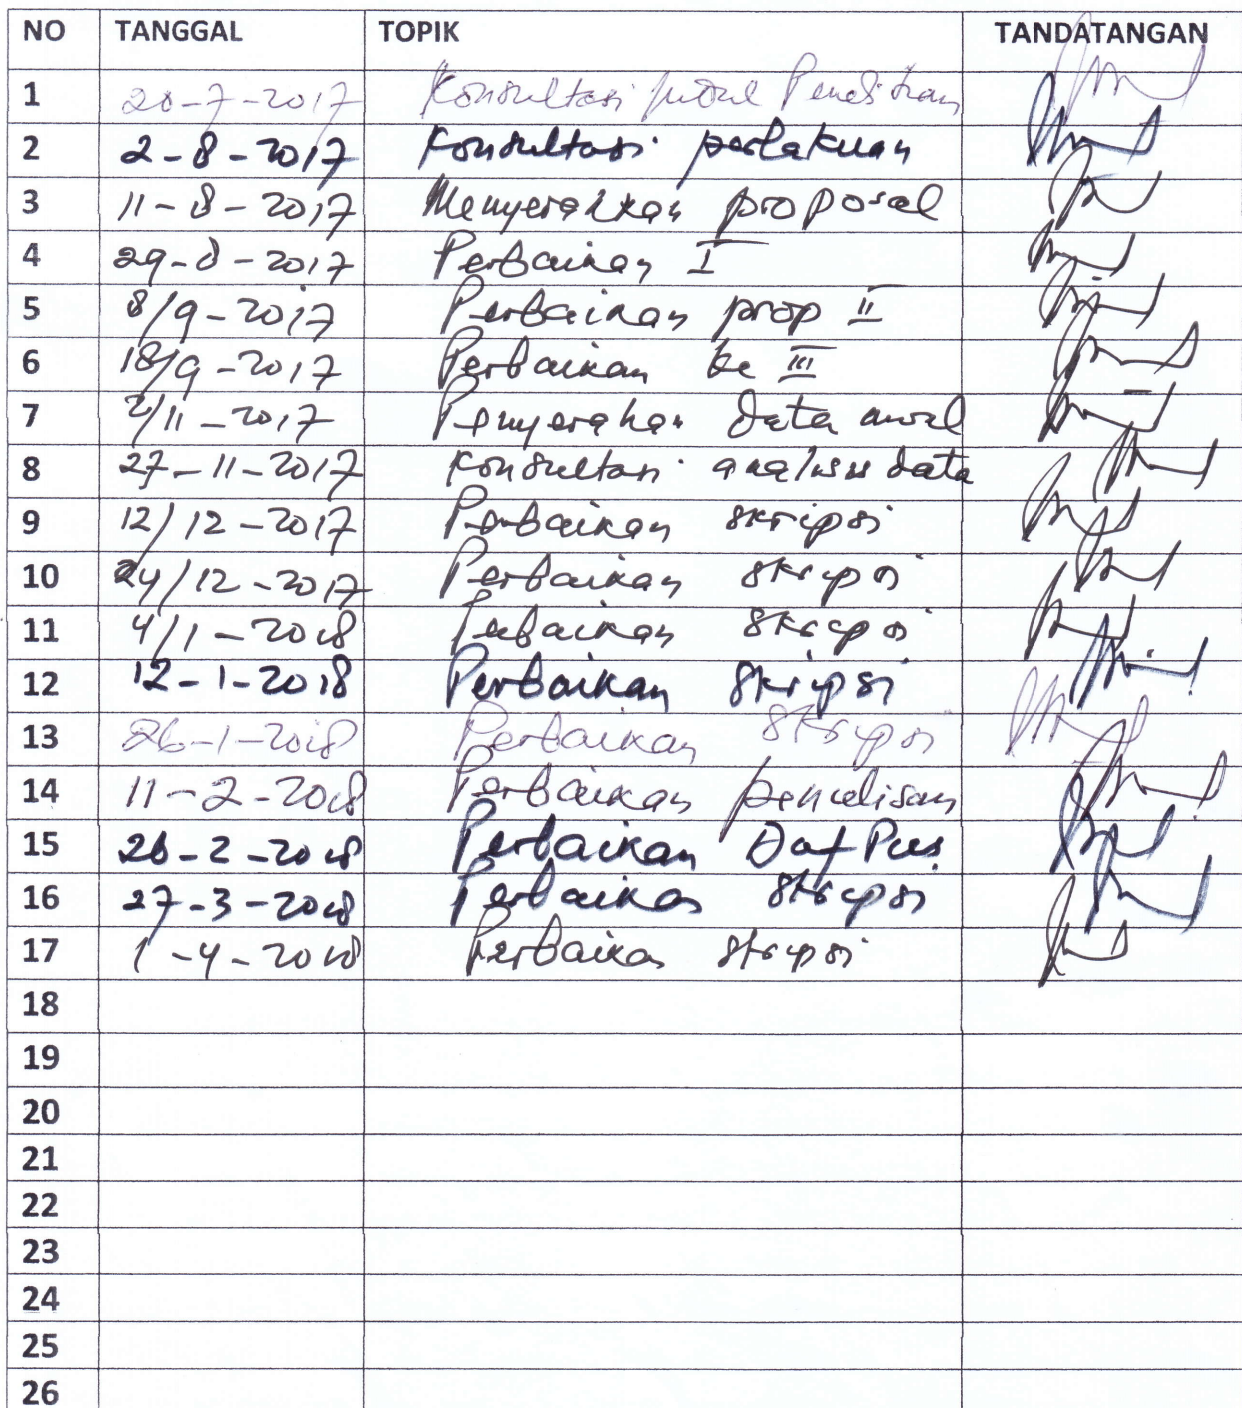 NO TANGGAL TOPIK TANDATANGAN
1 20-7-2017 Konsultasi judul Penelitian
2 2-8-2017 Konsultasi perlakuan
3 11-8-2017 Menyerahkan proposal
4 29-8-2017 Perbaikan I
5 8/9-2017 Perbaikan prop II
6 18/9-2017 Perbaikan ke III
7 2/11-2017 Penyerahan data awal
8 27-11-2017 Konsultasi analisis data
9 12/12-2017 Perbaikan skripsi
10 24/12-2017 Perbaikan skripsi
11 4/1-2018 Perbaikan skripsi
12 12-1-2018 Perbaikan skripsi
13 26-1-2018 Perbaikan skripsi
14 11-2-2018 Perbaikan penulisan
15 26-2-2018 Perbaikan Daf Pus
16 27-3-2018 Perbaikan skripsi
17 1-4-2018 Perbaikan skripsi
18
19
20
21
22
23
24
25
26